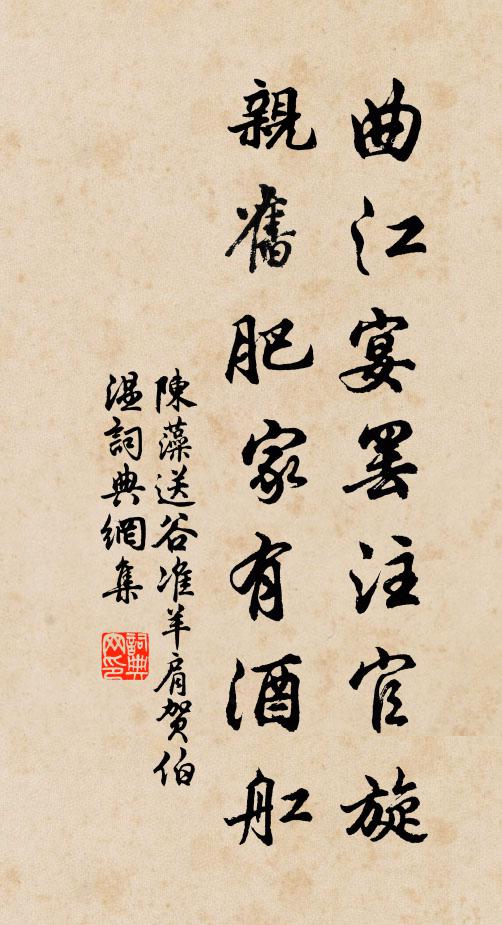 曲江宴罷注官旋
親舊肥家有酒舡
陳藻送谷准羊肩賀伯
溫詞典網集
詞典網印